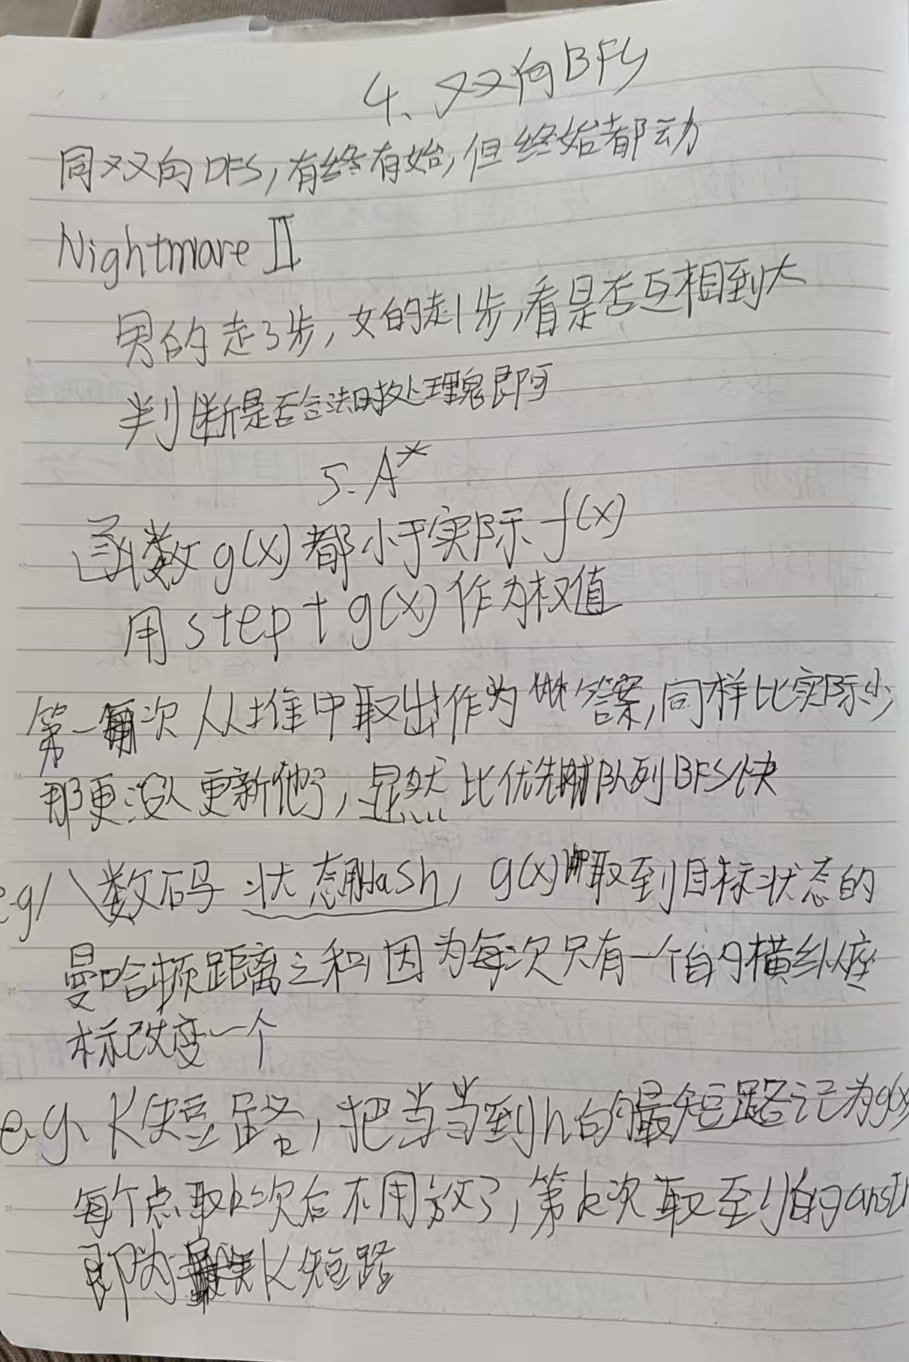 4、双向BFS
同双向DFS,有终有始,但终始都动
Nightmare II
男的走3步,女的走1步,看是否互相到达
判断是否合法时处理鬼即可
5. A*
函数g(x)都小于实际f(x)
用step+g(x)作为权值
第一次从堆中取出作为答案,同样比实际小
那更没人更新他了,显然比优先队列BFS快
e.g/八数码 状态用Hash,g(x)取到目标状态的
曼哈顿距离之和,因为每次只有一个的横纵座
标改变一个
e.g、K短路,把当前到n的最短路记为g(x)
每个点取k次后不用放了,第k次取到的
即为K短路